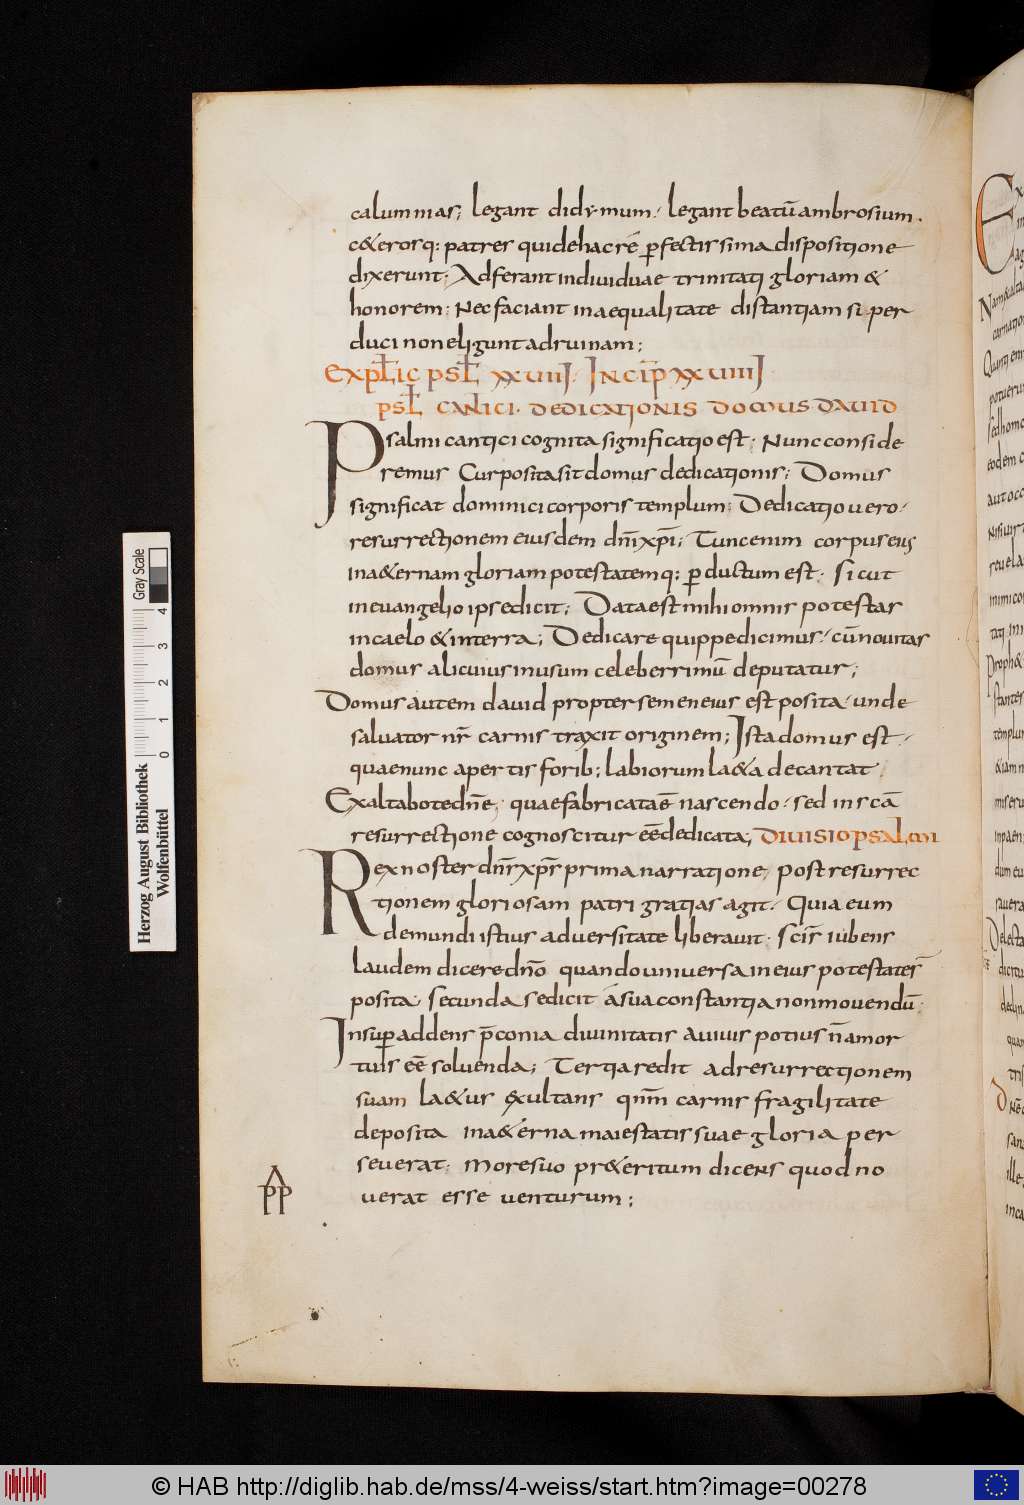 calumnias; legant didymum· legant beatū ambrosium·
c&erosq: patres qui de hac rē ꝑfectissima dispositione
dixerunt; Adferant individuae trinitati gloriam &
honorem; Nec faciant inaequalitate distantiam si per
duci non eligunt ad ruinam;
EXPLIC PSL XXVIII· INCIP XXVIIII
PSL CANTICI· DEDICATIONIS DOMUS DAVID
Psalmi cantici cognita significatio est· Nunc conside
remus Cur posita sit domus dedicationis; Domus
significat dominici corporis templum; Dedicatio vero·
resurrectionem eiusdem dñi xp̄i; Tunc enim corpus eius
in a&ernam gloriam potestatemq: ꝑductum est· Sicut
in evangelio ipse dicit; Data est mihi omnis potestas
in caelo & in terra; Dedicare quippe dicimus· cū novitas
domus alicuius in usum celeberrimū deputatur;
Domus autem david propter semen eius est posita· unde
salvator nr̄ carnis traxit originem; Ista domus est·
quae nunc apertis forib; labiorum la&a decantat·
Exaltabo te dn̄e· quae fabricata ē nascendo· sed in scā
resurrectione cognoscitur eē dedicata; DIVISIO PSALMI
Rex noster dn̄s xp̄s prima narratione· post resurrec
tionem gloriosam patri gratias agit· Quia eum
de mundi istius adversitate liberavit· scīs iubens
laudem dicere dn̄o quando universa in eius potestate s̄
posita· secunda se dicit á sua constantia non movendū·
Insuꝑ addens p̄conia divinitatis a vivis potius n̄ a mor
tuis eē solvenda; Tertia redit ad resurrectionem
suam la&us &xultans qn̄m carnis fragilitate
deposita in a&erna maiestatis suae gloria per
severat· more suo pr&eritum dicens quod no
verat esse venturum;
Herzog August Bibliothek
Wolfenbüttel
0 1 2 3 4
Gray Scale
© HAB http://diglib.hab.de/mss/4-weiss/start.htm?image=00278